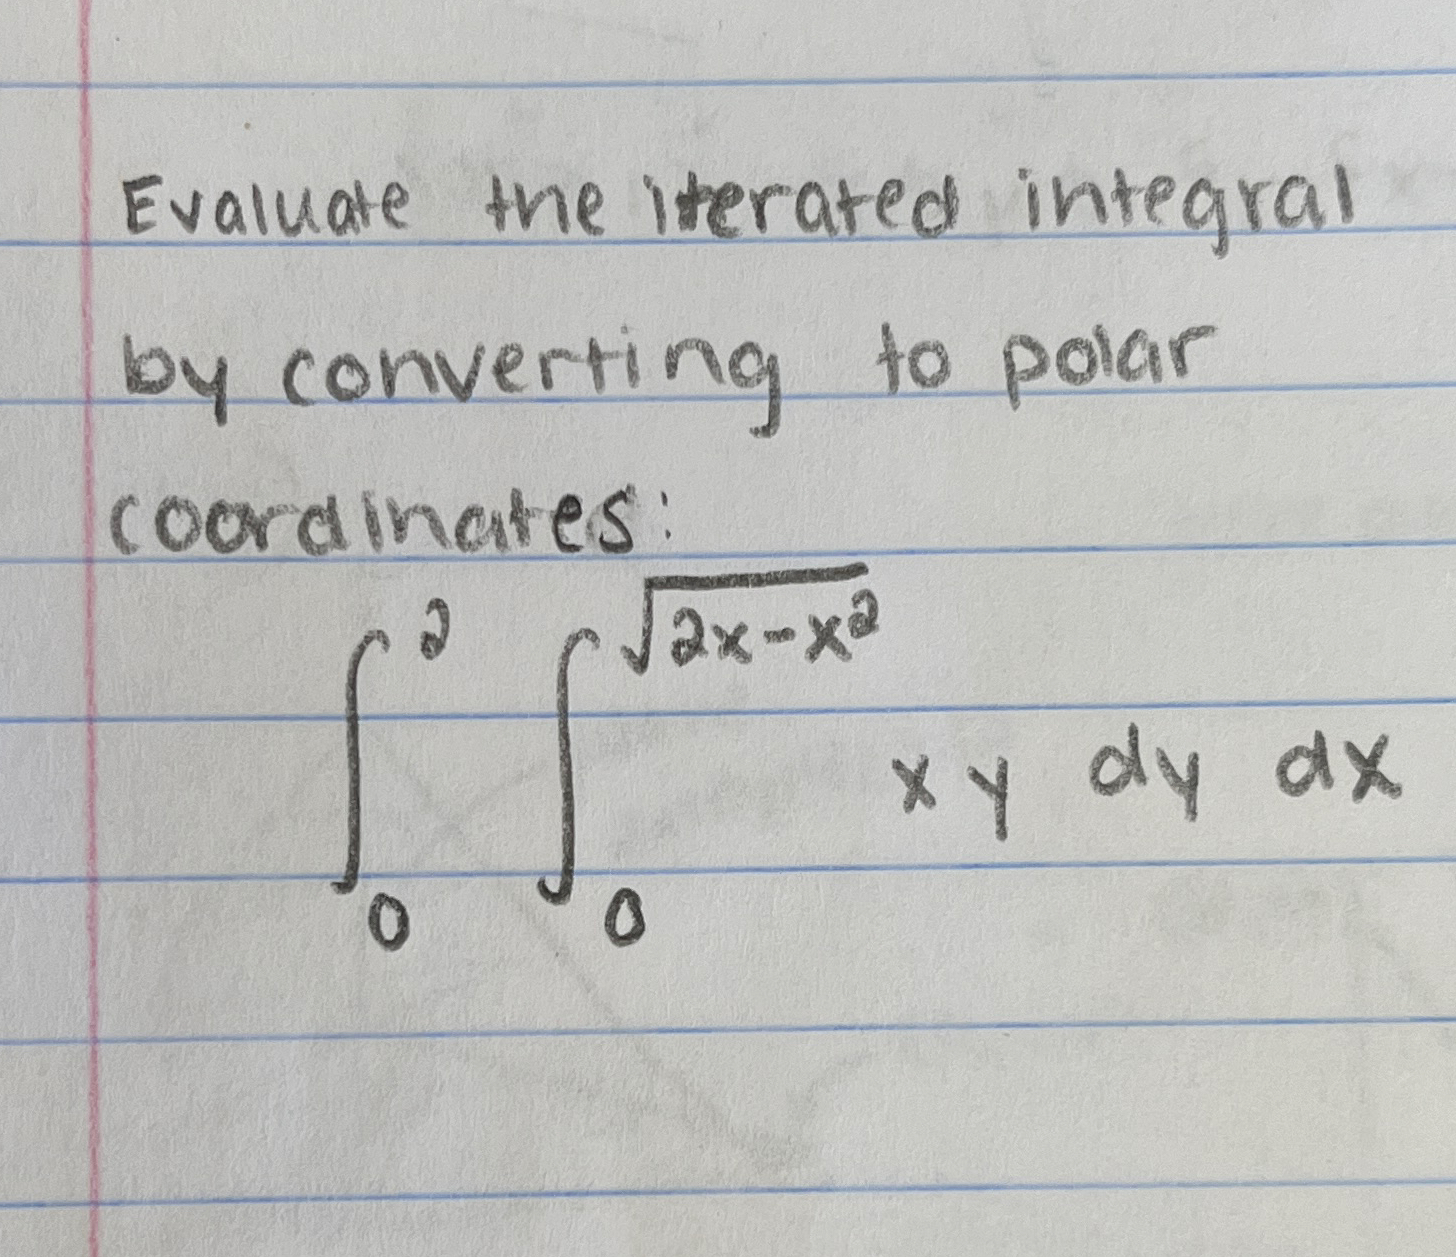 Evaluate the iterated integral
by converting to polar
coordinates:
∫₀² ∫₀^√(2x-x²) xy dy dx